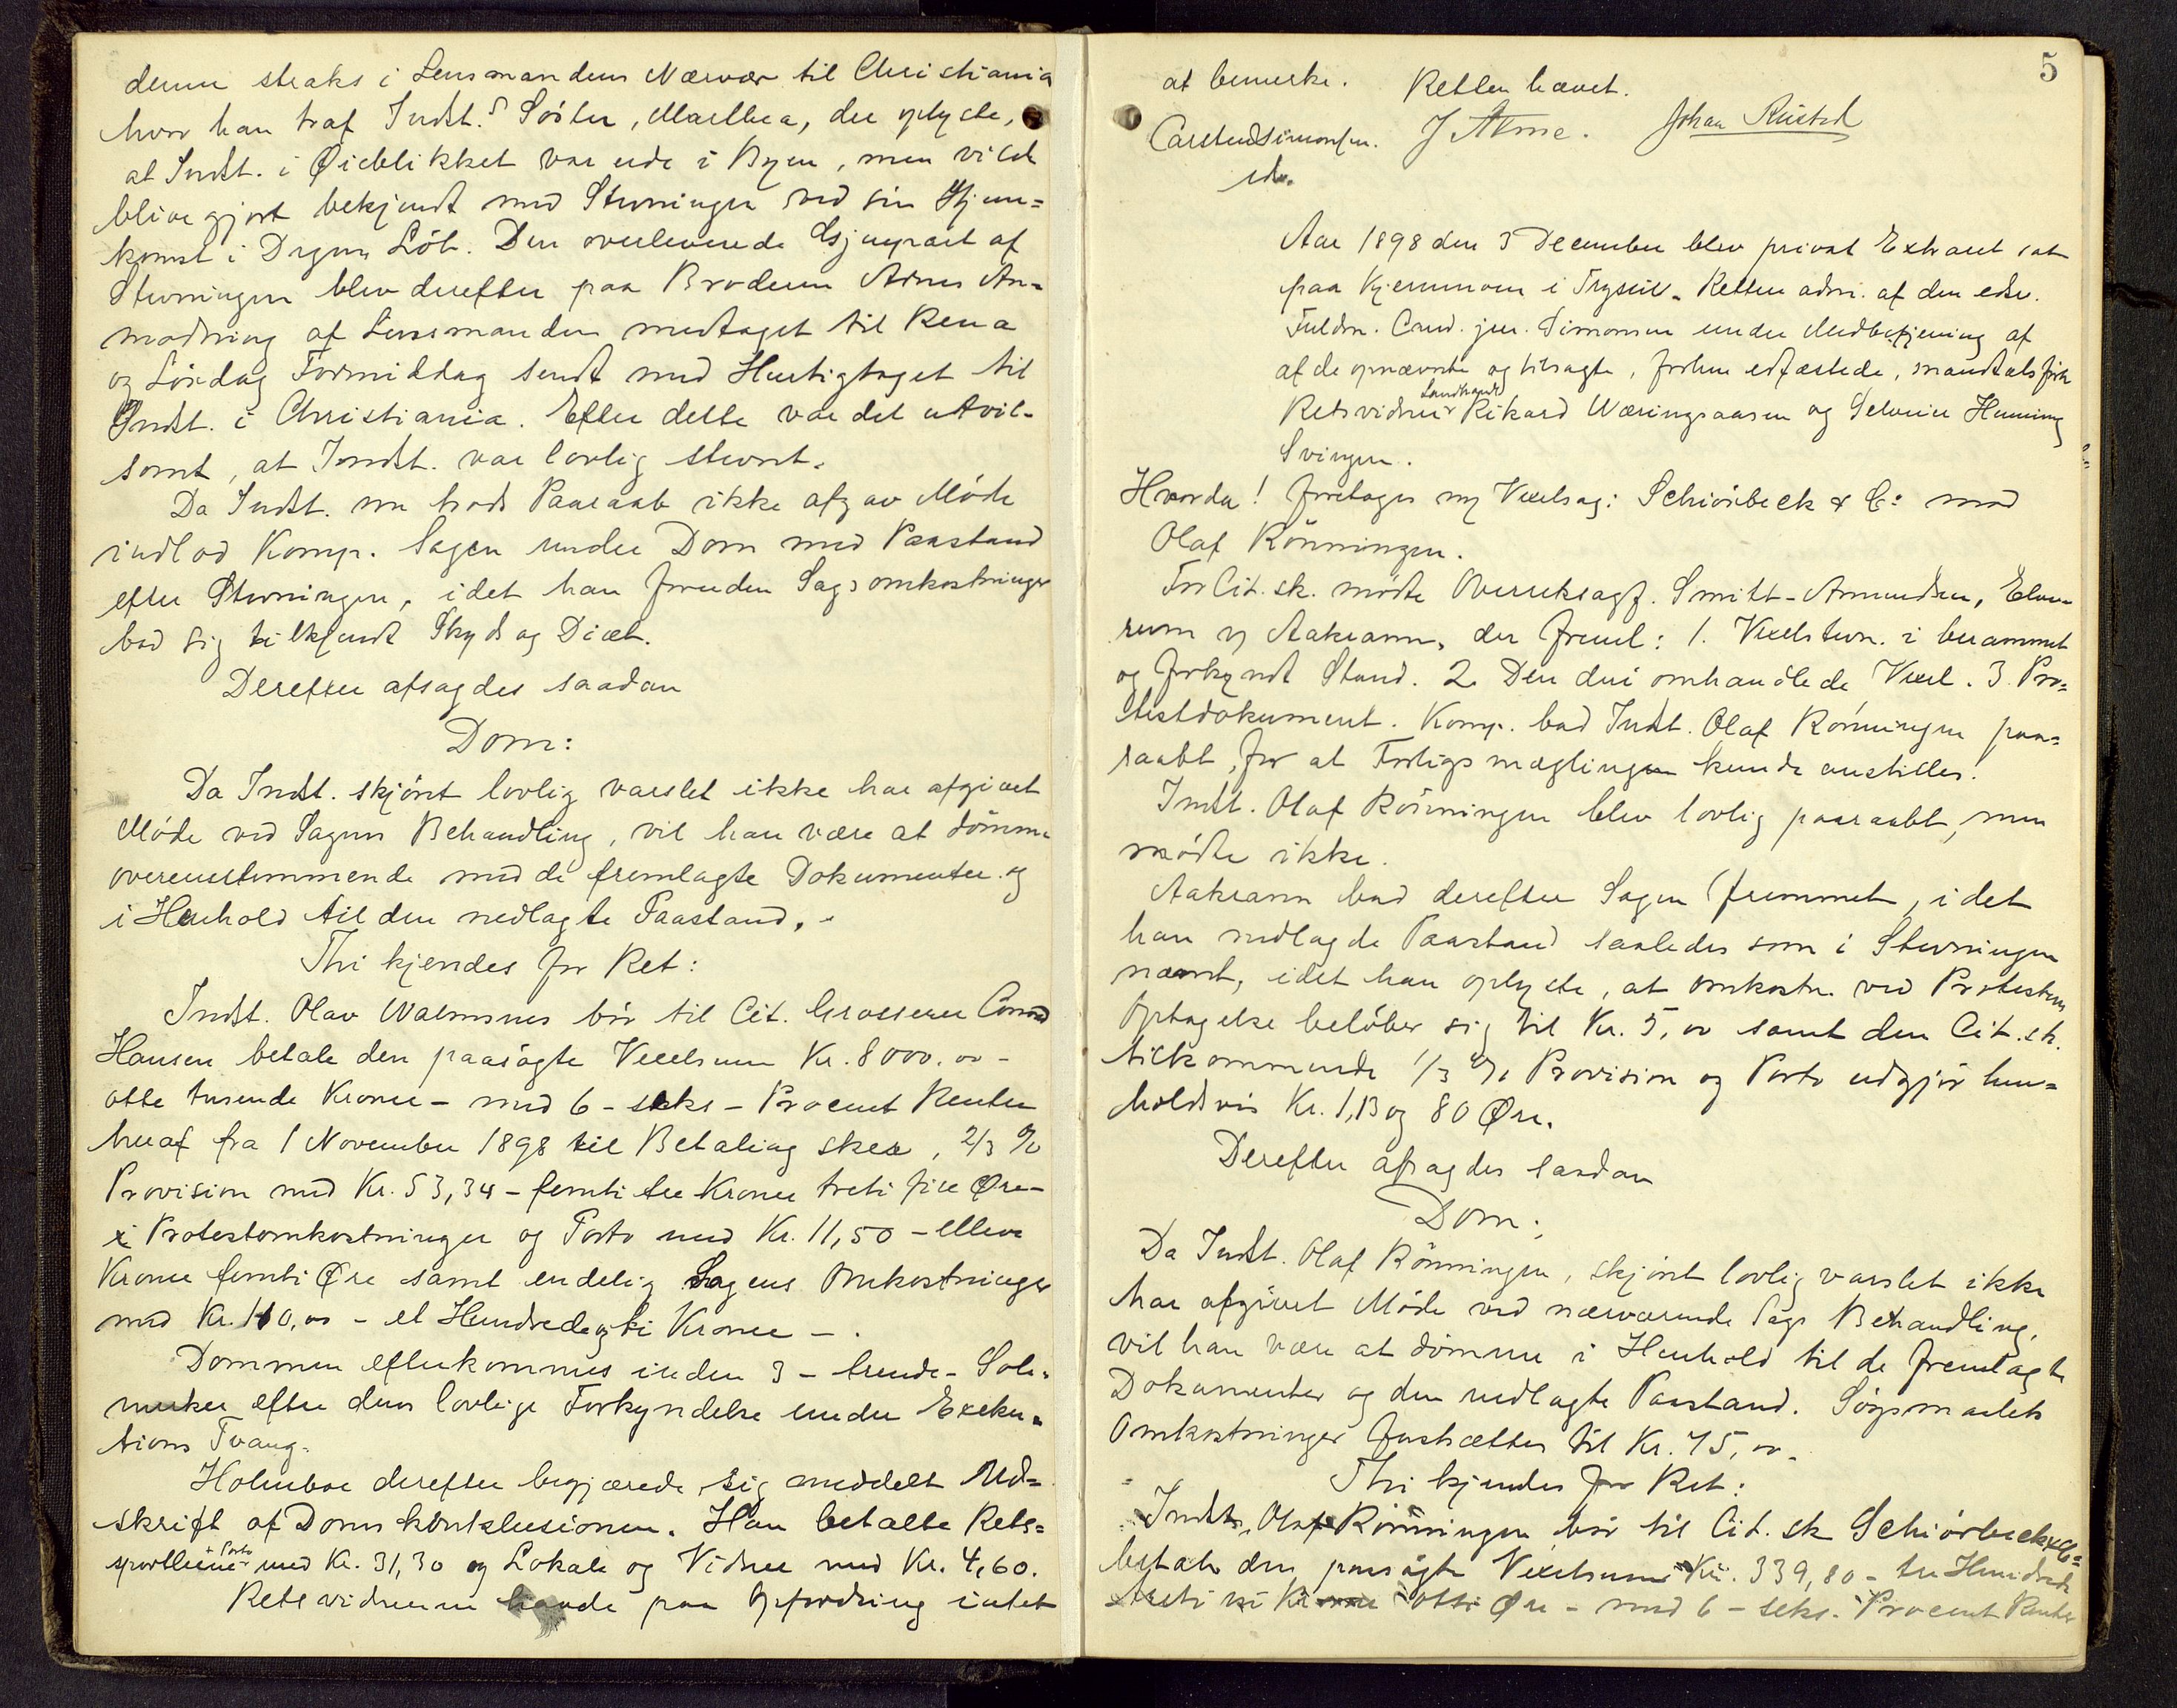 denne straks i Lensmandens Nærvær til Christiania
hvor han traf Indst.s Søster, Marthea, der oplyste,
at Indst. i Øieblikket var ude i Byen, men vilde
blive gjort bekjendt med Stevningen ved sin Hjem=
komst i Dagens Løb. Den overleverede Gjenpart af
Stevningen blev derefter paa Broderen Arnes An=
modning af Lensmanden medtaget til Rena
og Lördag Formiddag sendt med Hurtigtoget til
Indst. i Christiania. Efter dette var det utvil-
somt, at Indst. var lovlig stevnt.
Da Indst. nu trods Paaraab ikke afgav Møde
indlod Komp. Sagen under Dom med Paastand
efter Stevningen, idet han foruden Sagsomkostninger
bad sig tilkjendt Skyds og Diæt.
Derefter afsagdes saadan
Dom:
Da Indst. skjönt lovlig varslet ikke har afgivet
Møde ved Sagens Behandling, vil han være at dömme
overensstemmende med de fremlagte Dokumenter og
i Henhold til den nedlagte Paastand. -
Thi kjendes for Ret:
Indst. Olav Walmsnes bör til Cit. Grosserer Conrad
Hansen betale den paasögte Vexelsum Kr. 8000.00 -
otte tusende Kroner - med 6 - seks - Procent Renter
heraf fra 1 November 1898 til Betaling skeer, 2/3 %
Provision med Kr. 53,34 - femti tre Kroner treti fire Øre -
i Protestomkostninger og Porto med Kr. 11,50 - elleve
Kroner femti Øre samt endelig Sagens Omkostninger
med Kr. 110,00 - et Hundrede og ti Kroner - .
Dommen efterkommes inden 3 - trende - Sole=
merker efter dens lovlige Forkyndelse under Exeku=
tions Tvang.
Holmboe derefter begjærede sig meddelt Ud=
skrift af Domskonklusionen. Han betalte Rets=
sportlerne + Porto med Kr. 31,30 og Lokale og Vidner med Kr. 4,60.
Retsvidnerne havde paa Opfordring intet
5
at bemerke. Retten hævet.
Carsten Simonsen. J Atme. Johan Rustad
edv.
Aar 1898 den 3 December blev privat Extraret sat
paa Kjernmoen i Trysil. Retten adm. af den edsv.
Fuldm. Cand. jur. Simonsen under Medbetjening af
af de opnævnte og tilsagte, forhen edfæstede, mandtalsförte
Retsvidner Landhandl. Rikard Væringsaasen og Selveier Henning
Svingen.
Hvorda! foretoges ny Vexelsag: Schiörbeck & Co: mod
Olaf Rönningen.
For Cit. sk. mödte Overretssagf. Smitt-Amundsen, Elve=
rum v/ Aakrann, der freml: 1. Vexelstevn. i berammet
og forkyndt Stand. 2. Den deri omhandlede Vexel. 3. Pro=
testdokument. Komp. bad Indst. Olaf Rönningen paa=
raabt, for at Forligsmægling kunde anstilles.
Indst. Olaf Rönningen blev lovlig paaraabt, men
mödte ikke.
Aakrann bad derefter Sagen fremmet, idet
han nedlagde Paastand saaledes som i Stevningen
nævnt, idet han oplyste, at omkostn. ved Protestens
Optagelse belöber sig til Kr. 5,00 samt den Cit. sk.
tilkommende 1/3 % Provision og Porto udgjör hen=
holdsvis Kr. 1,13 og 80 Øre.
Derefter afsagdes saadan
Dom:
Da Indst. Olaf Rönningen, skjönt lovlig varslet ikke
har afgivet Møde ved nærværende Sags Behandling,
vil han være at dömme i Henhold til de fremlagte
Dokumenter og den nedlagte Paastand. Søgsmaalets
Omkostninger fastsættes til Kr. 75,00.
Thi kjendes for Ret:
Indst. Olaf Rönningen bör til Cit. sk Schiörbeck & Co:
betale den paasögte Vexelsum Kr. 339,80 - tre Hundrede
treti ni Kroner otti Øre - med 6 - seks - Procent Renter